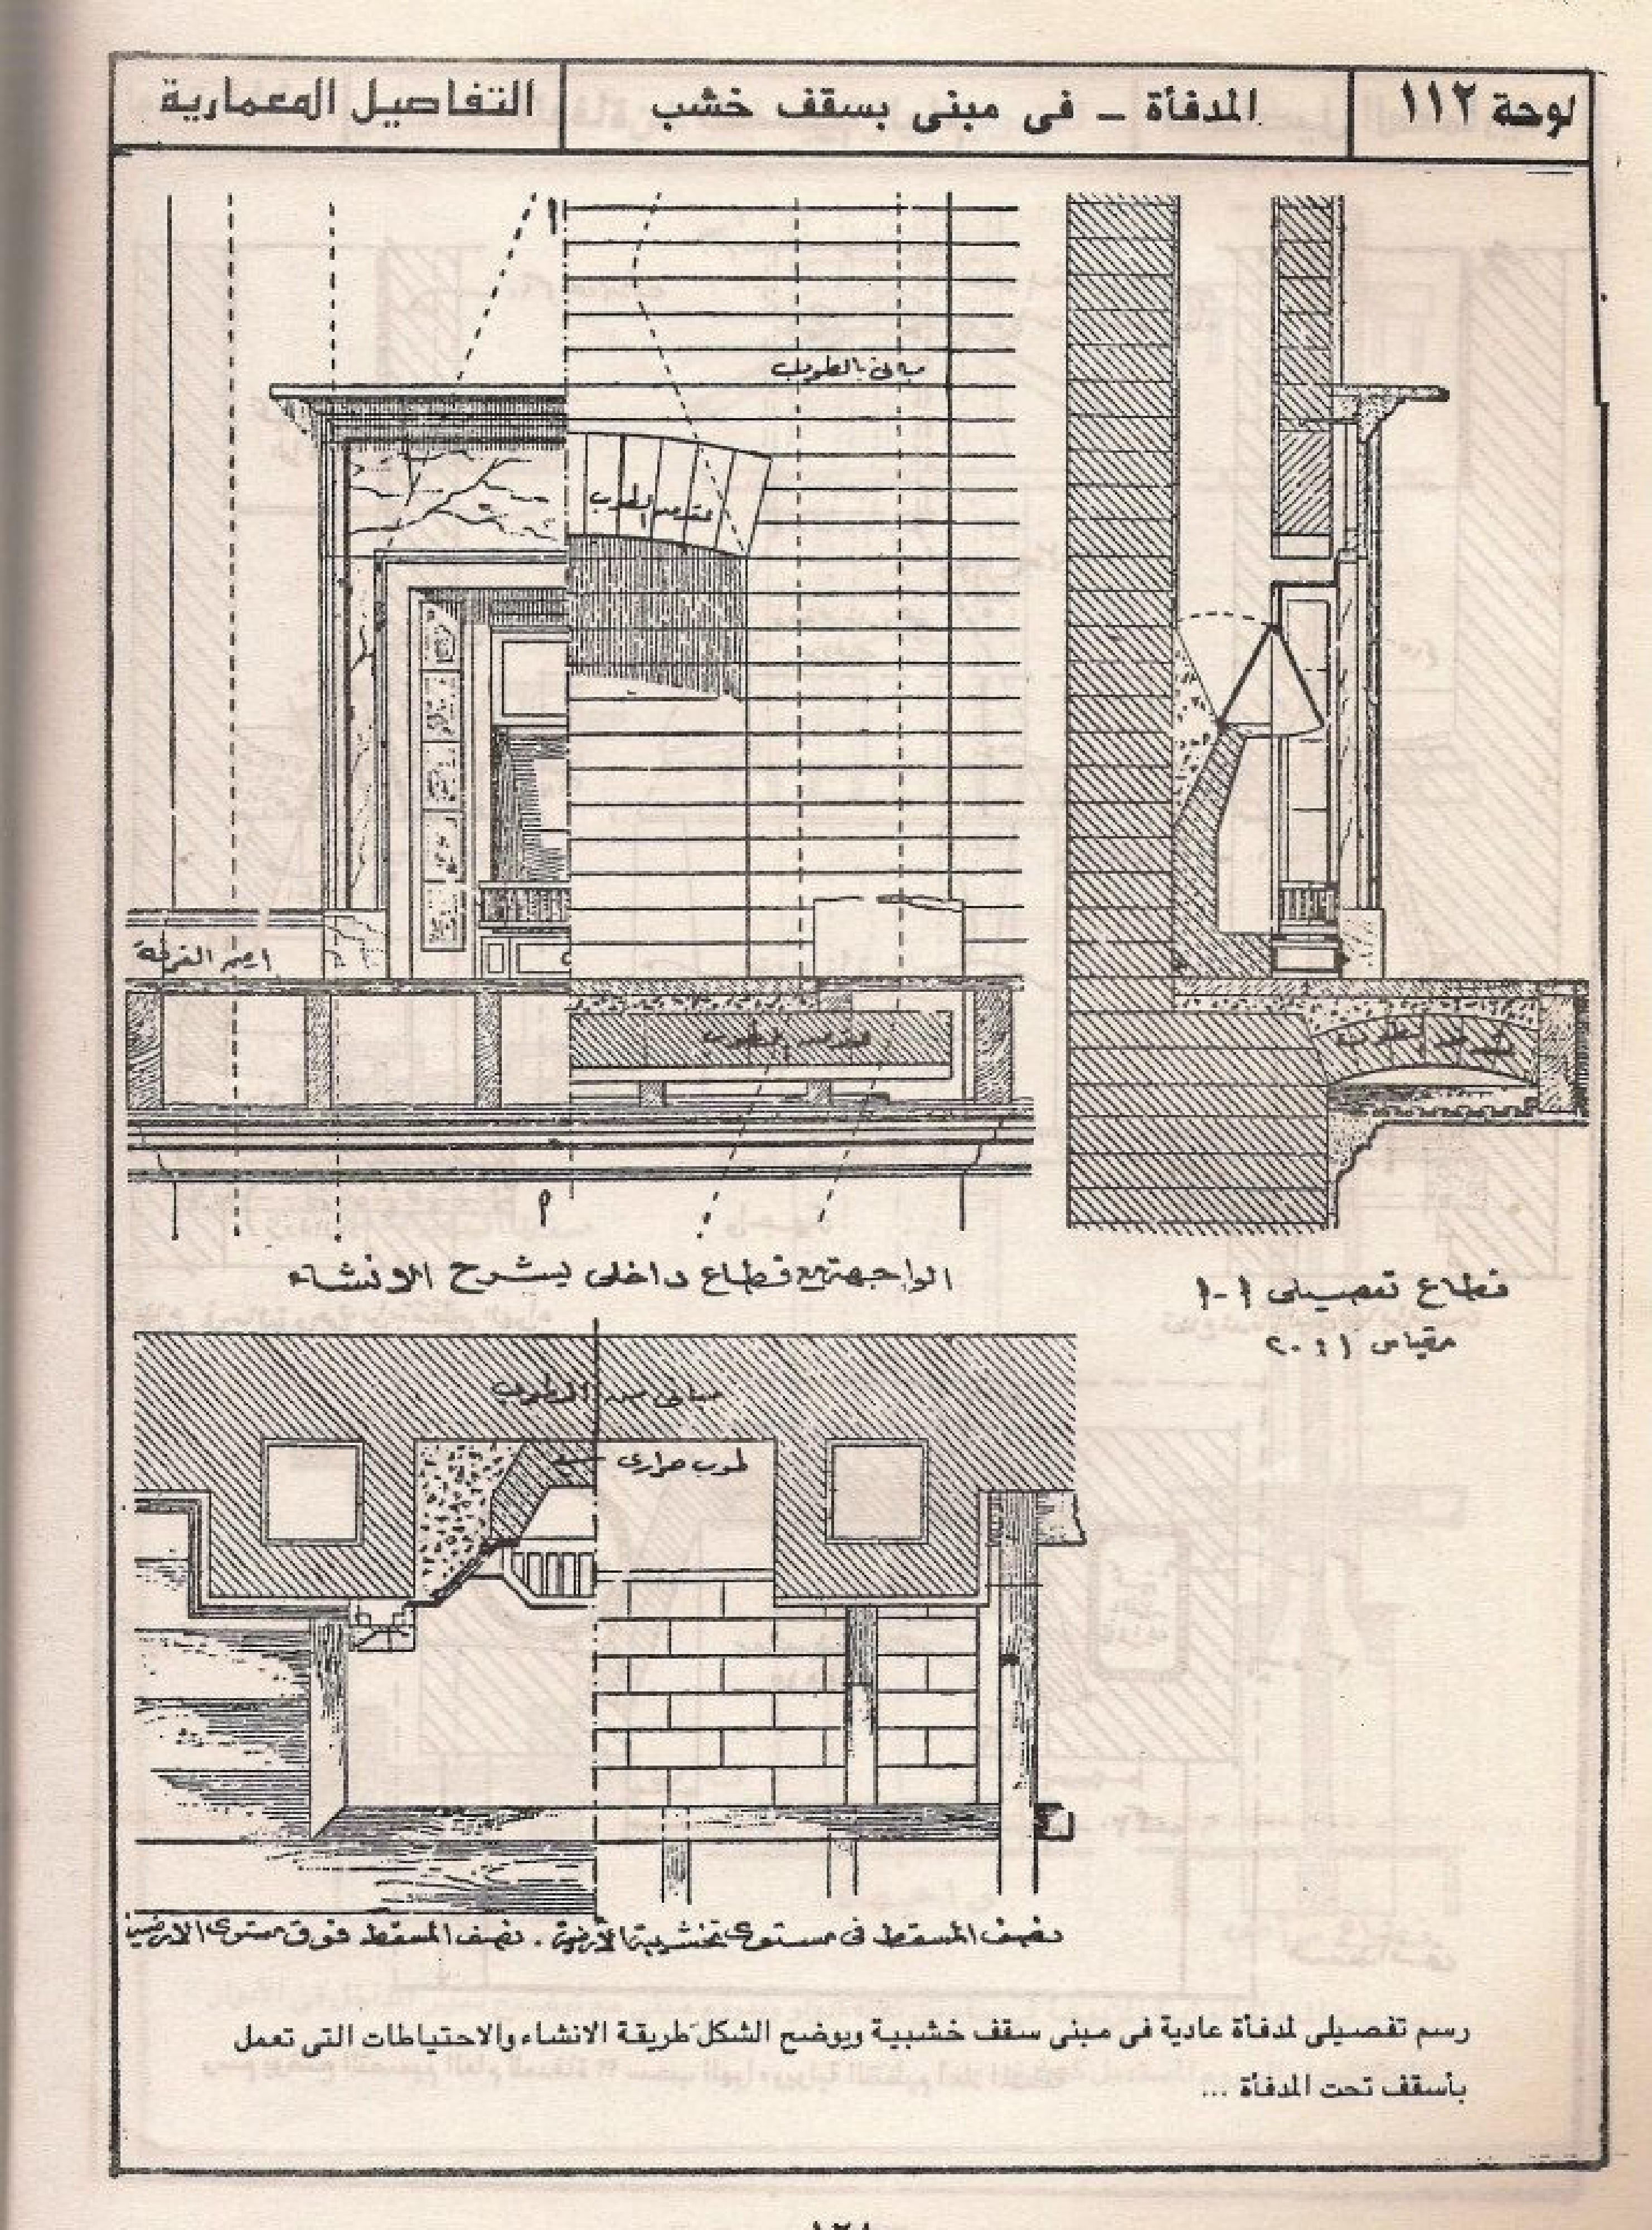 لوحة ١١٢
المدفأة - فى مبنى بسقف خشب
التفاصيل المعمارية
ا
مبانى بالطوب
عقد من الطوب
ارضية الغرفة
عقد من الطوب
عقد من الطوب
م
الواجهة مع قطاع داخلى يشرح الانشاء
قطاع تفصيلى ١-١
مقياس ١ : ٢٠
مبانى من الطوب
طوب حرارى
نصف المسقط فى مستوى تخشيبة الأرضية . نصف المسقط فوق مستوى الارضية
رسم تفصيلى لمدفأة عادية فى مبنى سقف خشبية ويوضح الشكل طريقة الانشاء والاحتياطات التى تعمل
بأسقف تحت المدفأة ...